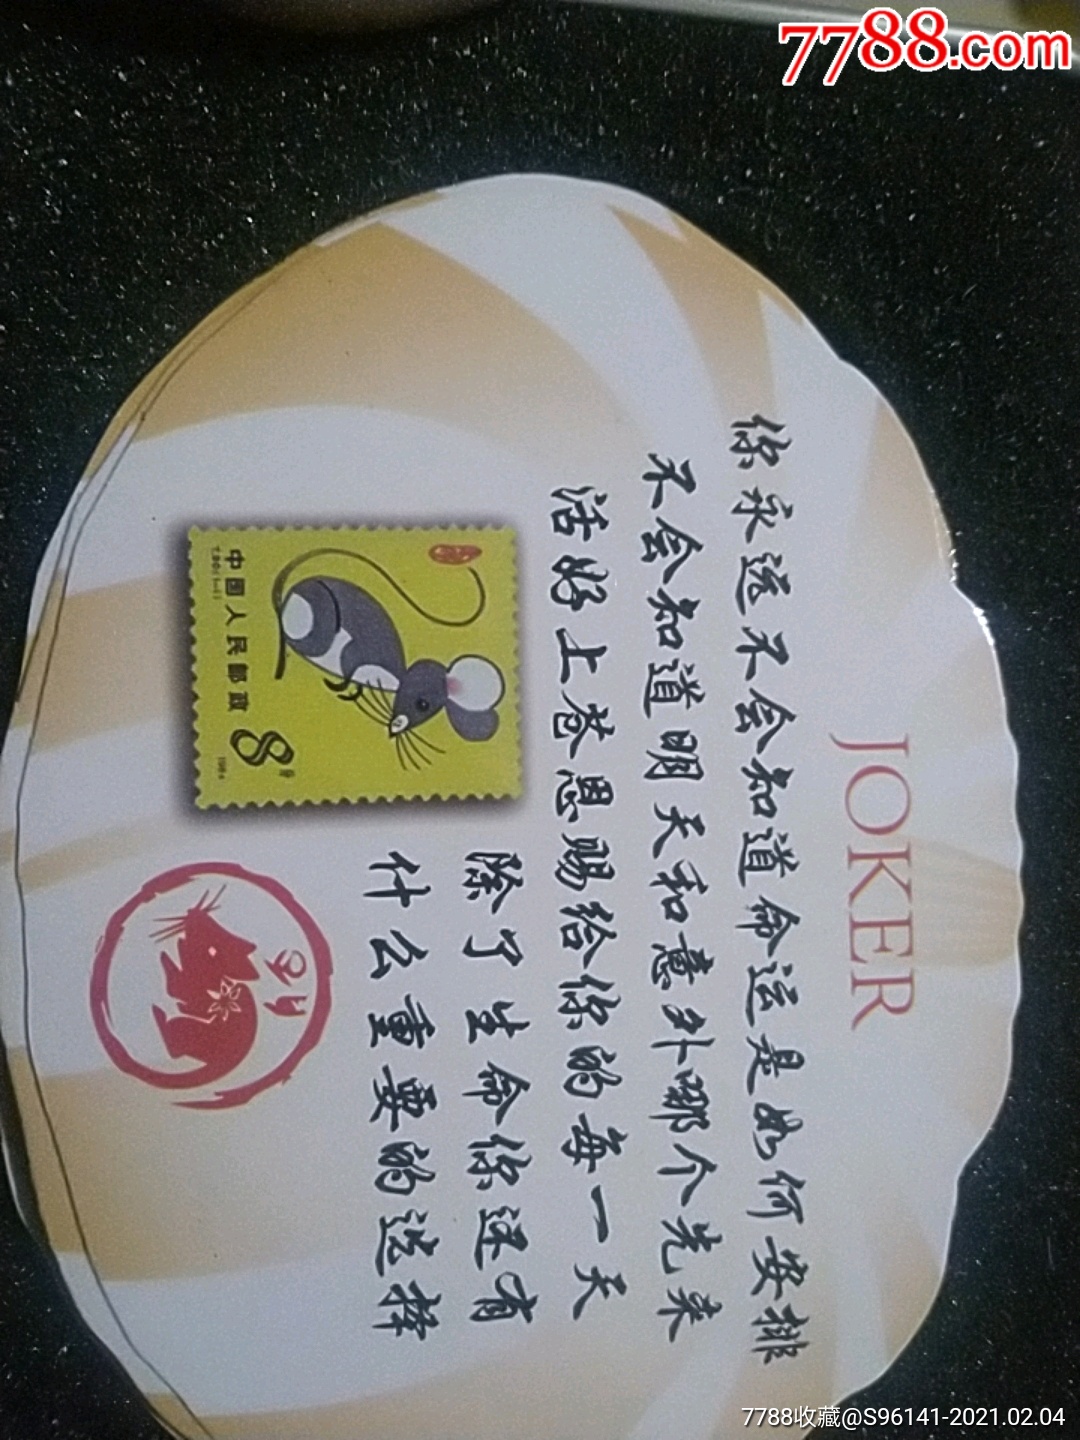 7788.com
JOKER
你永远不会知道命运是如何安排
不会知道明天和意外哪个先来
活好上苍恩赐给你的每一天
除了生命你还有
什么重要的选择
中国人民邮政
8分
T.90(1-1)
1984
7788收藏@S96141-2021.02.04